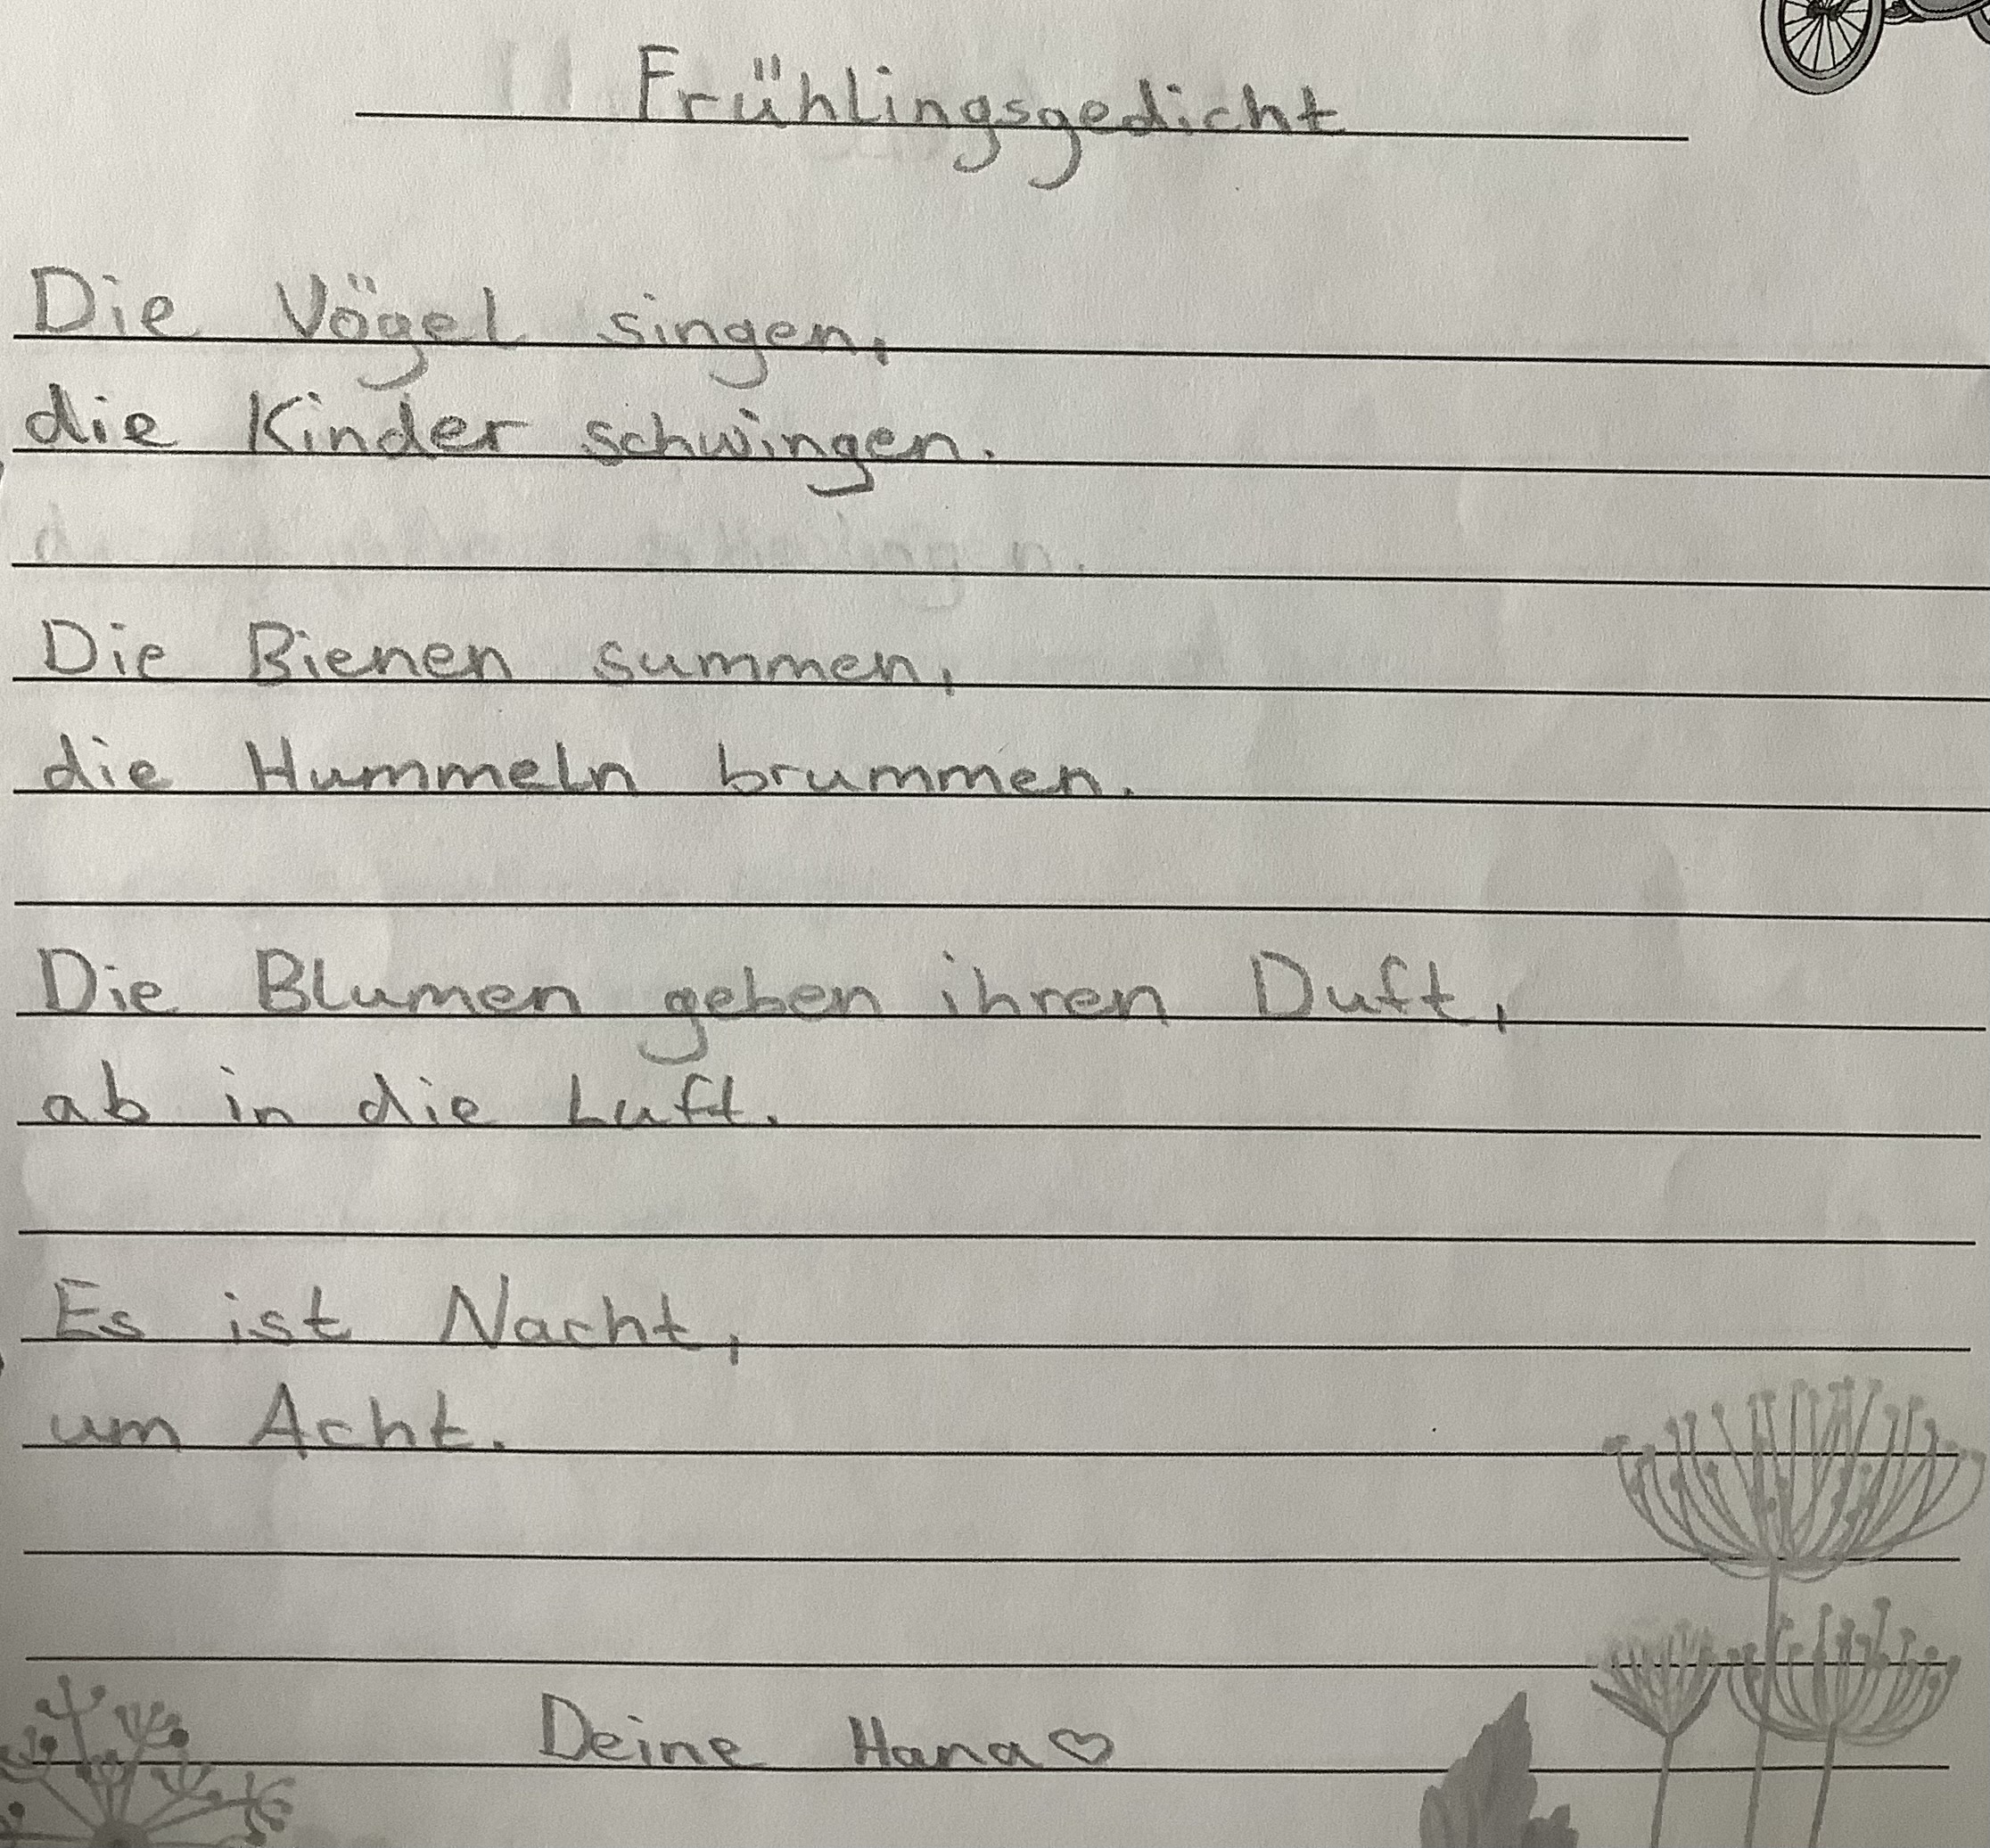 Frühlingsgedicht
Die Vögel singen,
die Kinder schwingen.
Die Bienen summen,
die Hummeln brummen.
Die Blumen geben ihren Duft,
ab in die Luft.
Es ist Nacht,
um Acht.
Deine Hana♡